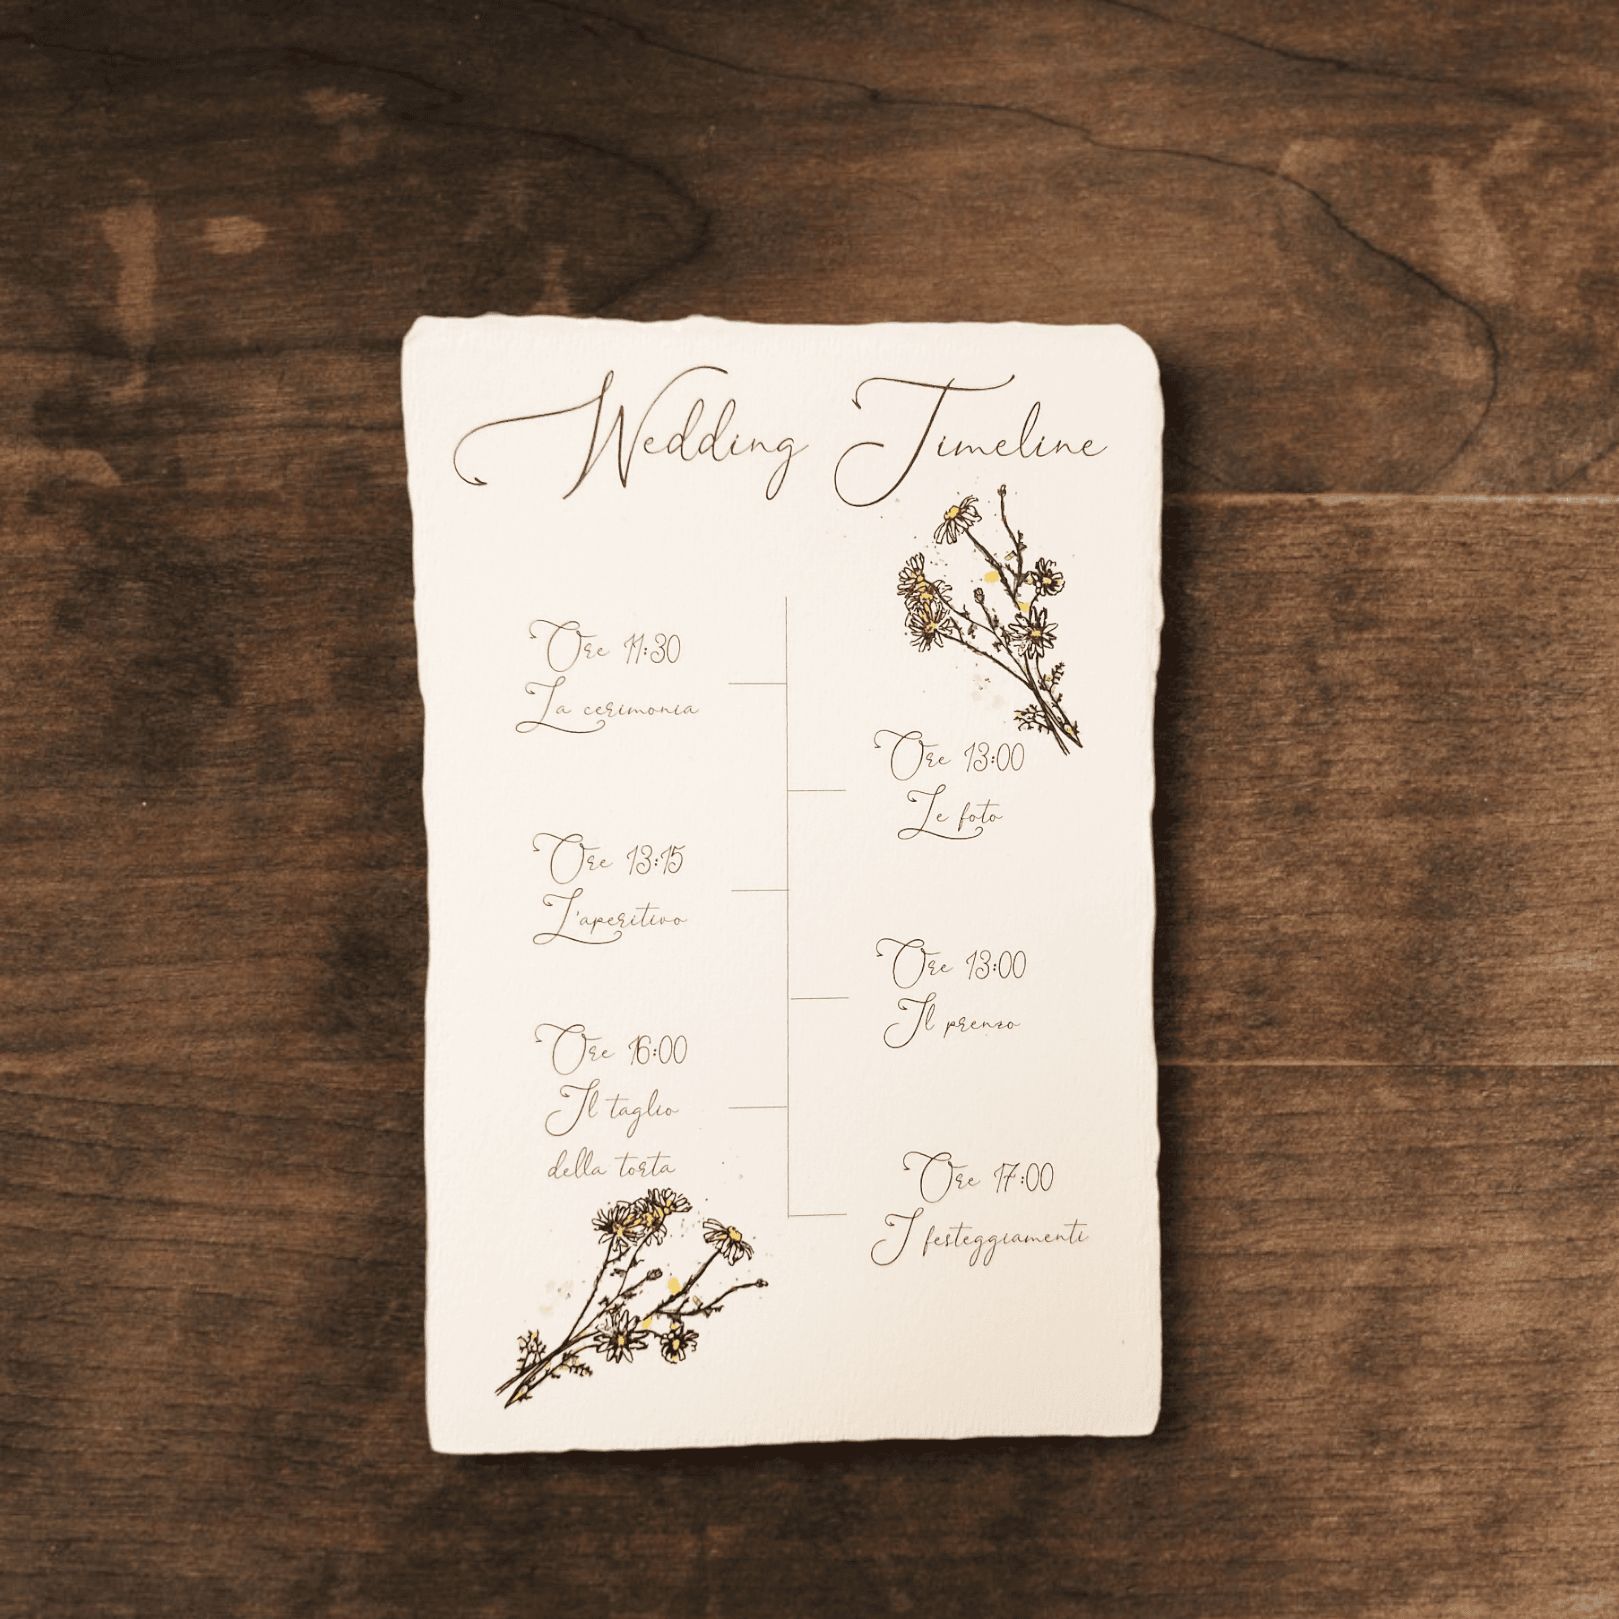 Wedding Timeline
Ore 11:30
La cerimonia
Ore 13:00
Le foto
Ore 13:15
L'aperitivo
Ore 13:00
Il prenzo
Ore 16:00
Il taglio
della torta
Ore 17:00
I festeggiamenti